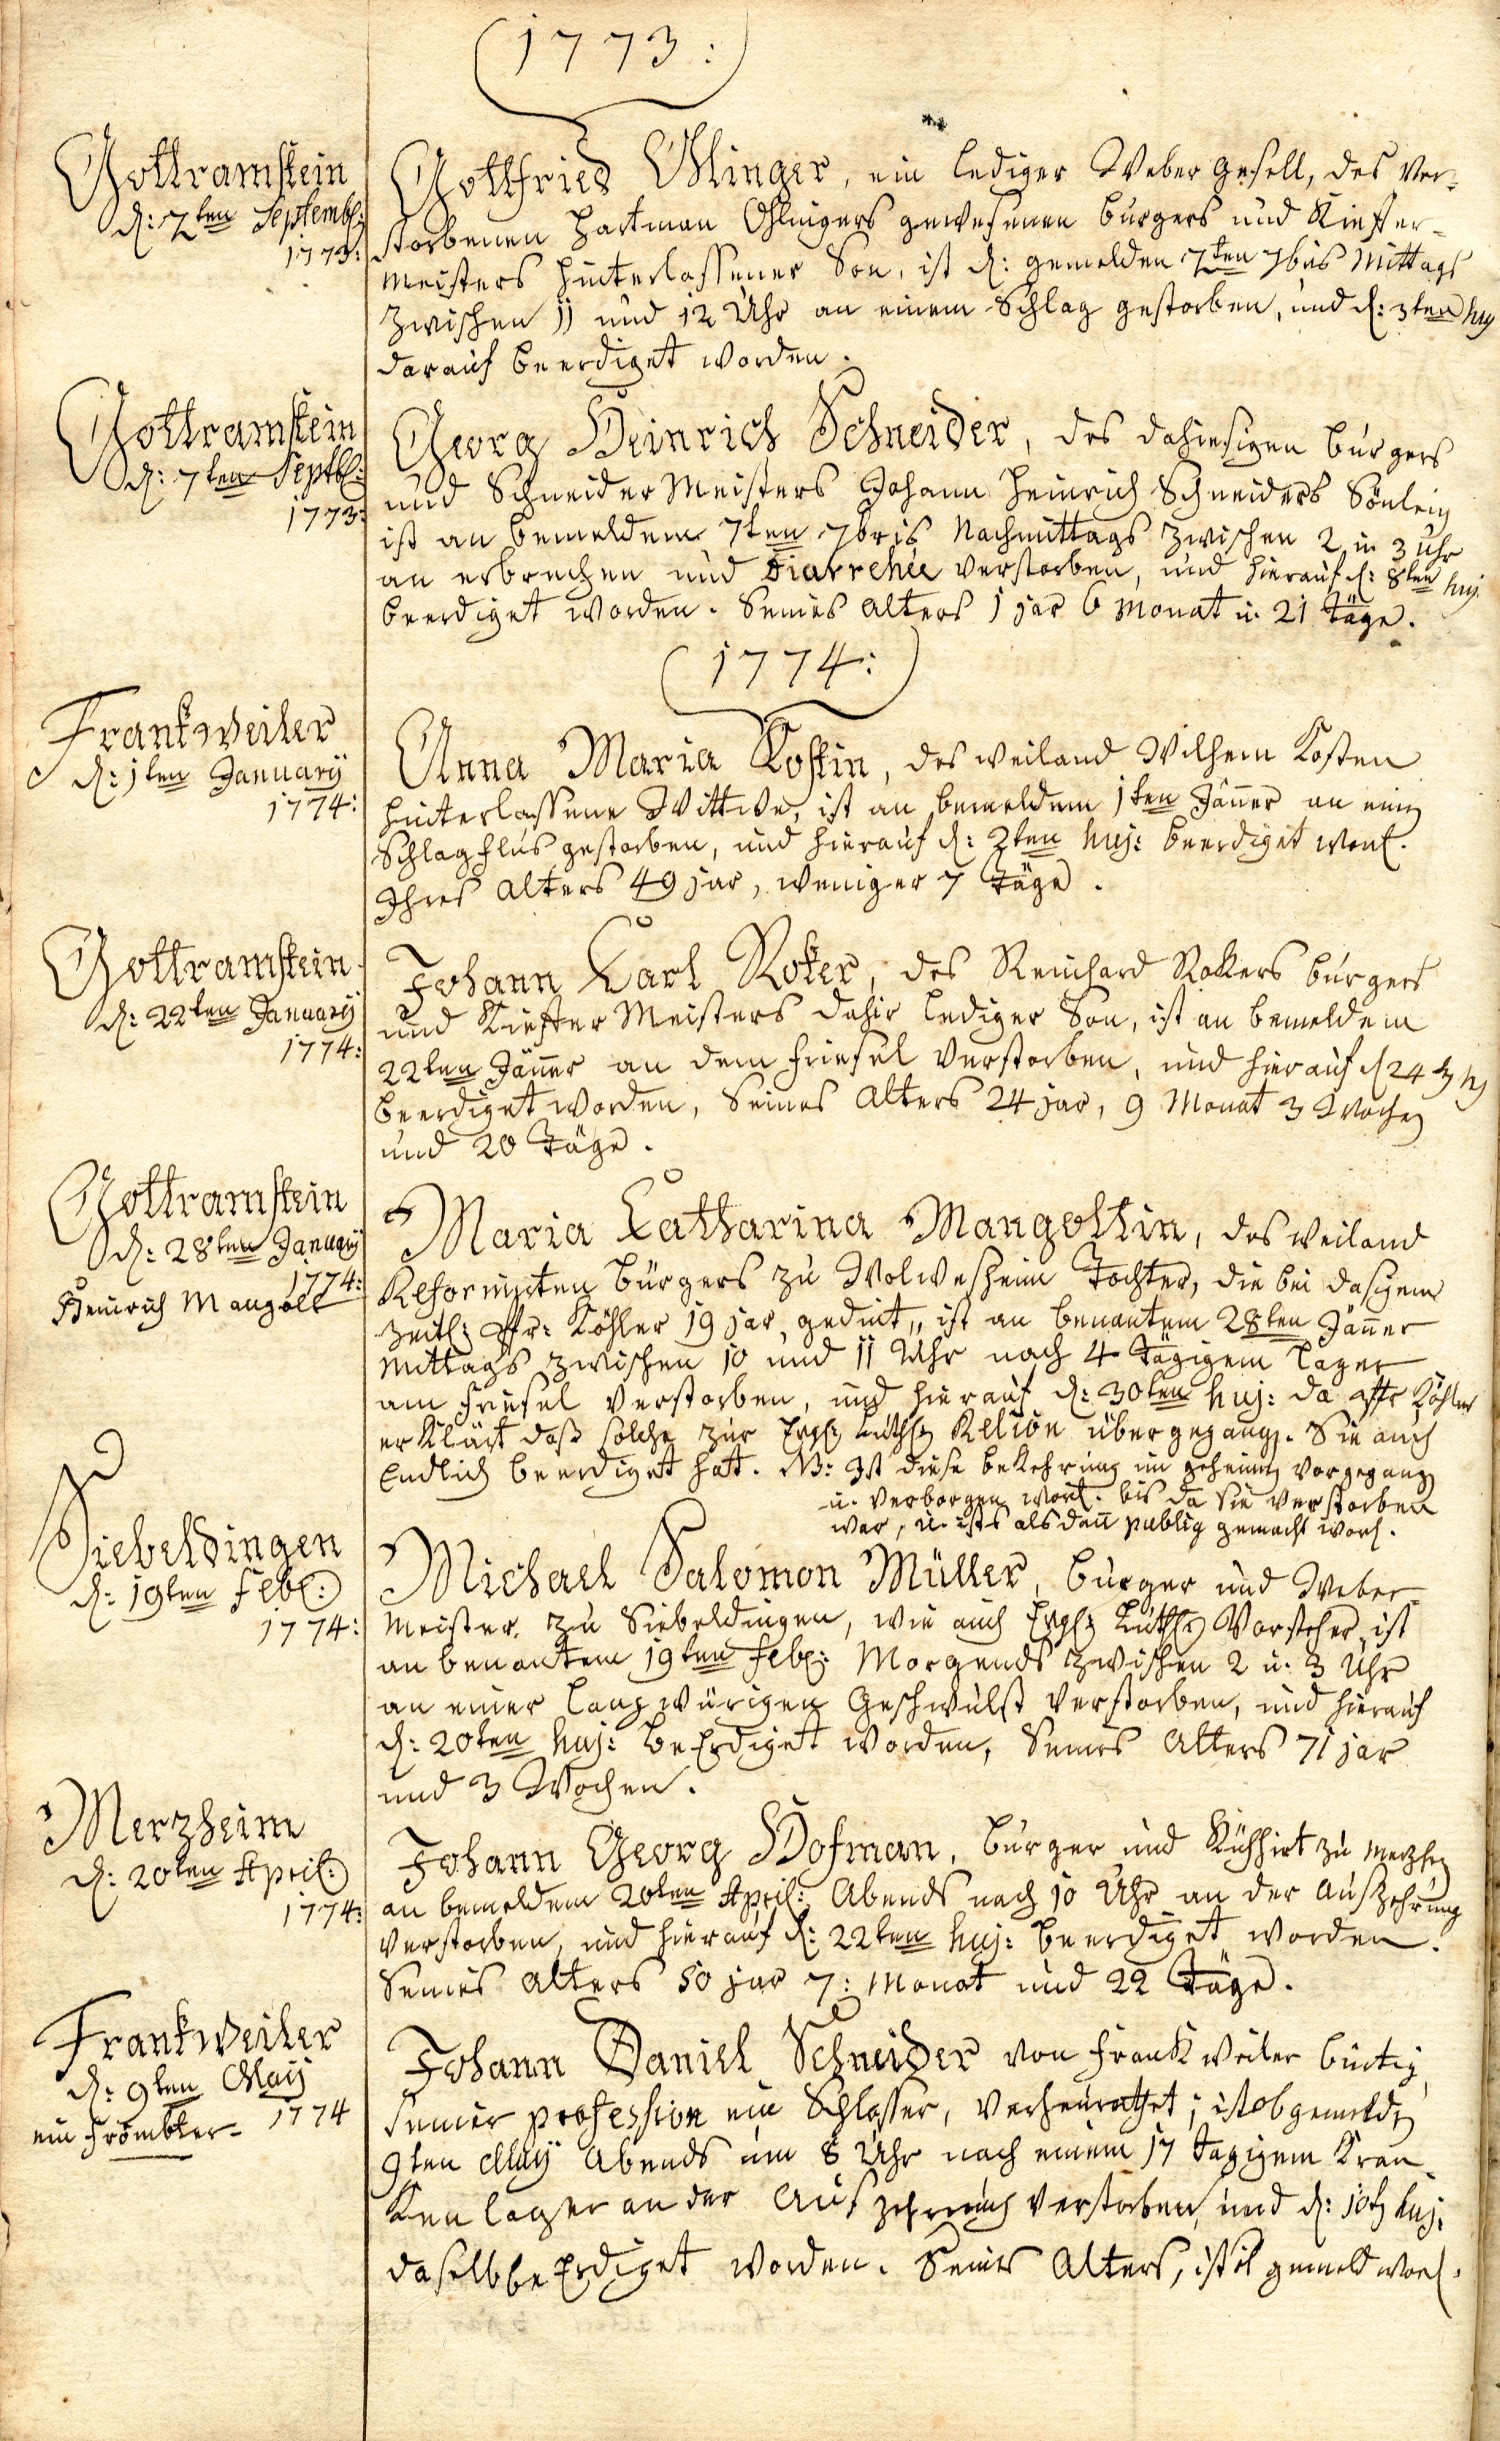 1773:
Gottramstein
d: 2ten Septembr:
1773:
Gottfried Ohlinger, ein lediger Weber Gesell, des ver-
storbenen Hartman Ohlingers gewesenen burgers und Kiefer-
meisters hinterlassener Son, ist d: gemelden 2ten 7bris Mittags
zwischen 11 und 12 Uhr an einem Schlag gestorben, und d: 3ten huj
darauf beerdiget worden.
Gottramstein
d: 7ten Septbr:
1773:
Georg Heinrich Schneider, des dahiesigen burgers
und Schneider Meisters Johann Heinrich Schneiders Sönlein
ist an bemeldem 7ten 7bris Nachmittags zwischen 2 u 3 Uhr
an erbrechen und Diarrehee verstorben, und hierauf d: 8ten huj.
beerdiget worden. Seines Alters 1 jar 6 Monat u. 21 Täge.
1774:
Frankweiler
d: 1ten January
1774:
Anna Maria Kostin, des weiland Wilhem Kosten
hinterlassene Wittwe, ist an bemeldem 1ten Jänner an einem
Schlagflus gestorben, und hierauf d: 2ten huj: beerdiget word.
Ihres Alters 49 jar, weniger 7 Täge.
Gottramstein
d: 22ten January
1774:
Johann Carl Roker, des Reinhard Rokkers burgers
und Kiefer Meisters dahir lediger Son, ist an bemeldem
22ten Jänner an dem friesel verstorben, und hierauf d 24 hj
beerdiget worden, Seines Alters 24 jar, 9 Monat 3 Wochen
und 20 Täge.
Gottramstein
d: 28ten January
1774:
Heinrich Mangolt
Maria Catharina Mangoltin, des weiland
Reformirten bürgers zu Wolmesheim Tochter, die bei dasigem
zeitl: Pfr: Köhler 19 jar gedint, ist an benantem 28ten Jänner
Mittags zwischen 10 und 11 Uhr nach 4 Tägigem Lager
am friesel verstorben, und hierauf d: 30ten huj: da Pfr Köhler
erklärt daß solche zur Evgl: Luth: Relion übergegang. Sie auch
Endlich beerdiget hat. NB: Ist diese bekehrung im geheimen vorgegang
u. verborgen word. bis da sie verstorben
war, u. ists als dan publig gemacht word.
Siebeldingen
d: 19ten Febr:
1774:
Michael Salomon Müller, burger und Weber
Meister zu Siebeldingen, wie auch Evgl: Luth: Vorsteher, ist
an benantem 19ten Febr: Morgends zwischen 2 u. 3 Uhr
an einer langwürigen Geschwulst verstorben, und hierauf
d: 20ten huj: beErdiget worden, Seines Alters 71 jar
und 3 Wochen.
Merzheim
d: 20ten April:
1774:
Johann Georg Hofman, burger und Kühhirt zu Merzhe
an bemeldem 20ten April: Abends nach 10 Uhr an der Auszehrung
verstorben, und hierauf d: 22ten huj: beerdiget worden.
Seines Alters 50 jar 7: Monat und 22 Täge.
Frankweiler
d: 9ten May
1774
ein frömbter
Johann Daniel Schneider von Frankweiler bürtig,
seiner profession ein Schlosser, verheurathet; ist obgemeldn
9ten May Abends um 8 Uhr nach einem 17 tägigem Kran
Ken lager an der Auszehrung verstorben, und d: 10tn huj:
daselb beErdiget worden. Seines Alters, ist gemeld word.